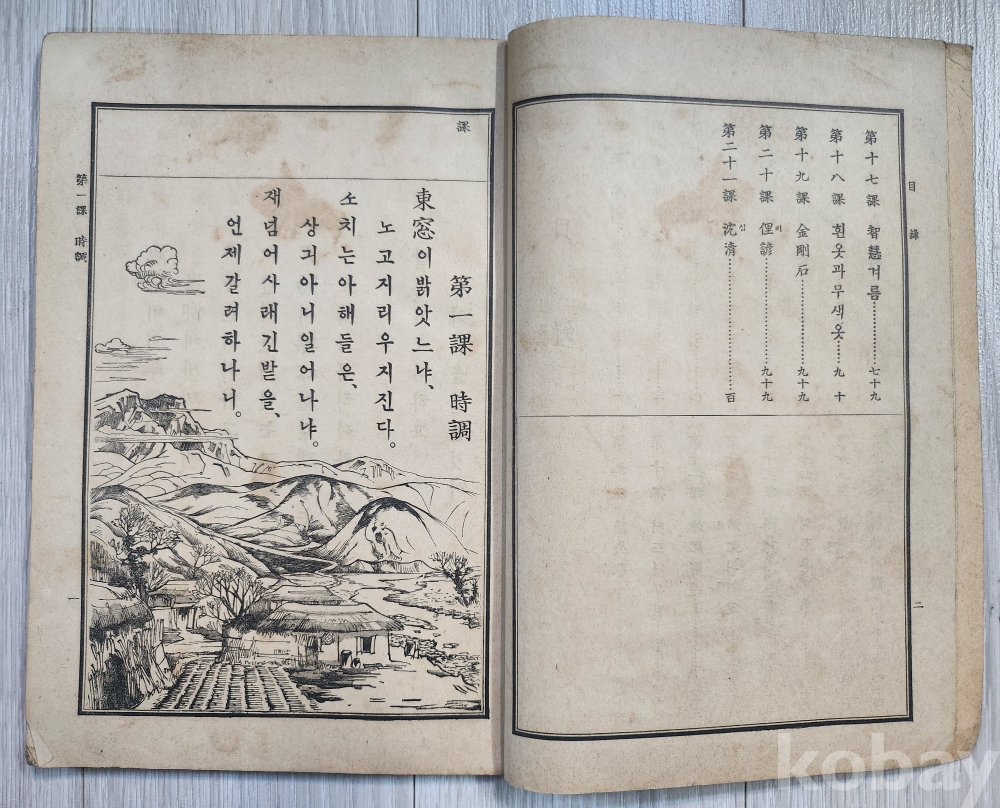 目錄
第十七課 智慧겨름……………七十九
第十八課 흰옷과무색옷……九十
第十九課 金剛石……………九十九
第二十課 俚諺……………九十九
第二十一課 沈淸……………百
二
課
第一課 時調
東窓이밝앗느냐、
노고지리우지진다。
소치는아해들은、
상긔아니일어나냐。
재넘어사래긴밭을、
언제갈려하나니。
第一課 時調
一
kobay